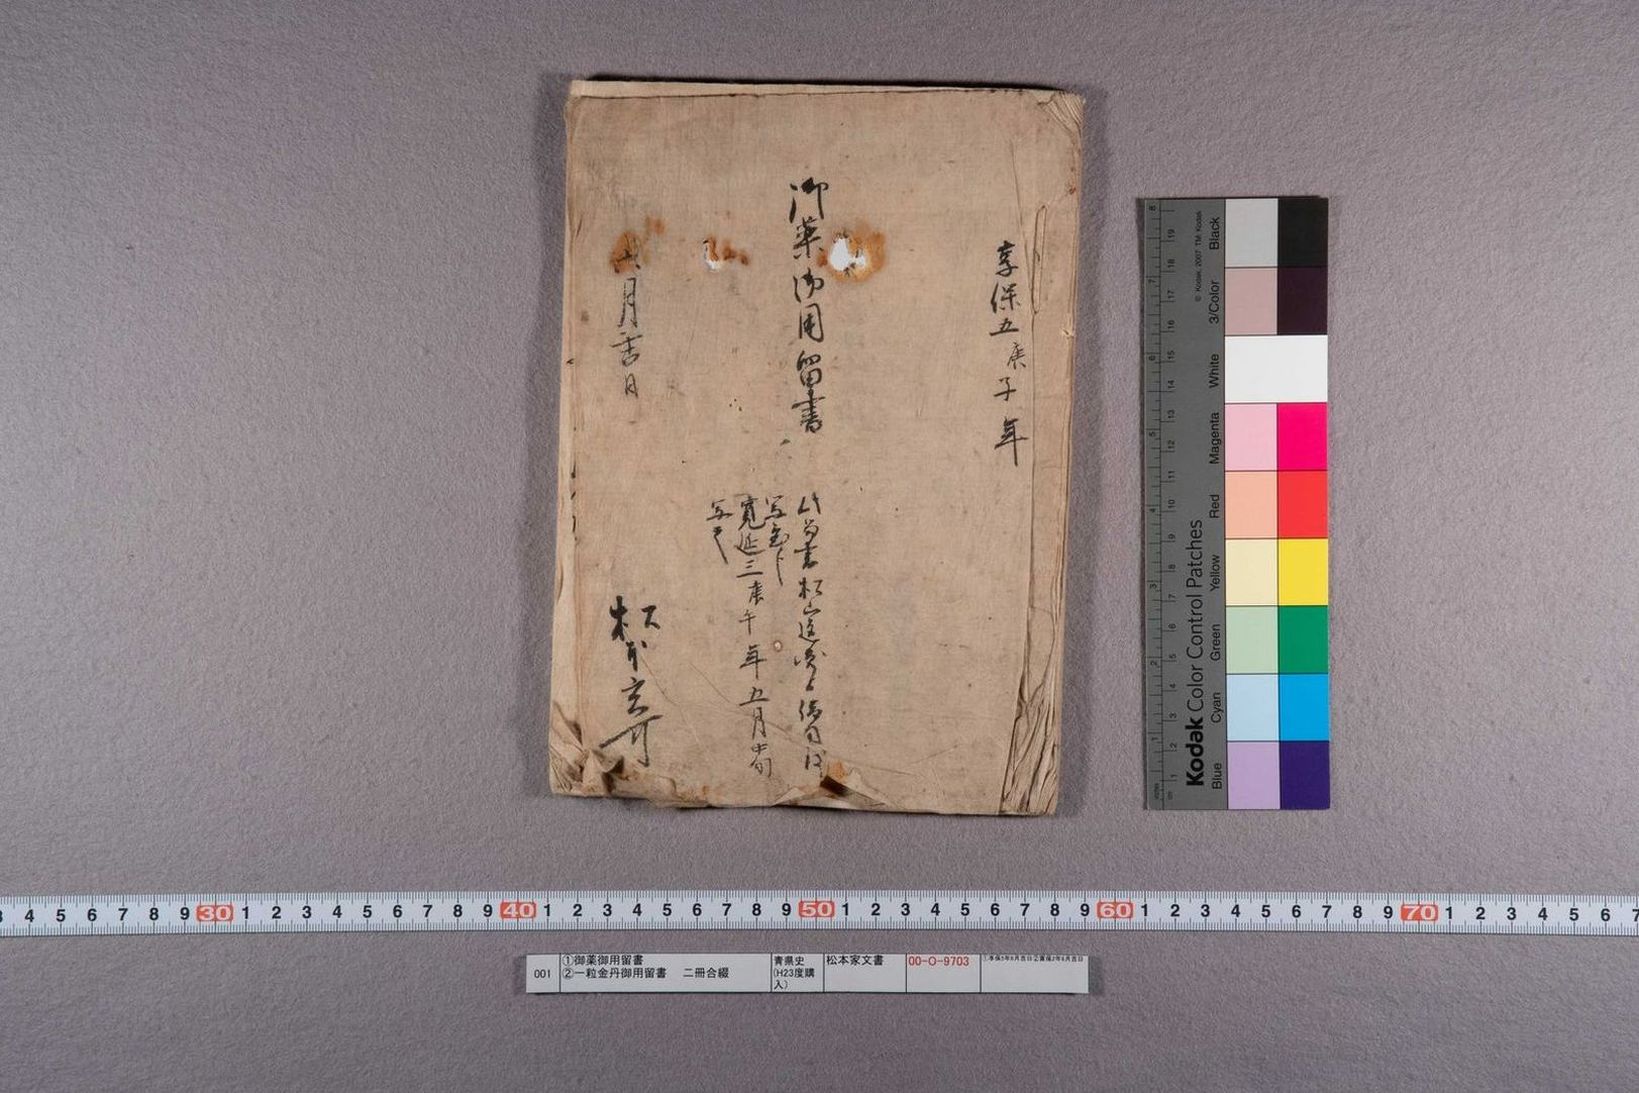 享保五庚子年
御薬御用留書
此留書松山
寛延三庚午年五月中旬
写之
月吉日
松本玄可
001
①御薬御用留書
②一粒金丹御用留書 二冊合綴
青県史
(H23度購
入)
松本家文書
00-O-9703
①享保5年6月吉日②寛保2年6月吉日
3 4 5 6 7 8 9 30 1 2 3 4 5 6 7 8 9 40 1 2 3 4 5 6 7 8 9 50 1 2 3 4 5 6 7 8 9 60 1 2 3 4 5 6 7 8 9 70 1 2 3 4 5 6 7
Kodak Color Control Patches
© Kodak, 2007 TM: Kodak
Blue Cyan Green Yellow Red Magenta White 3/Color Black